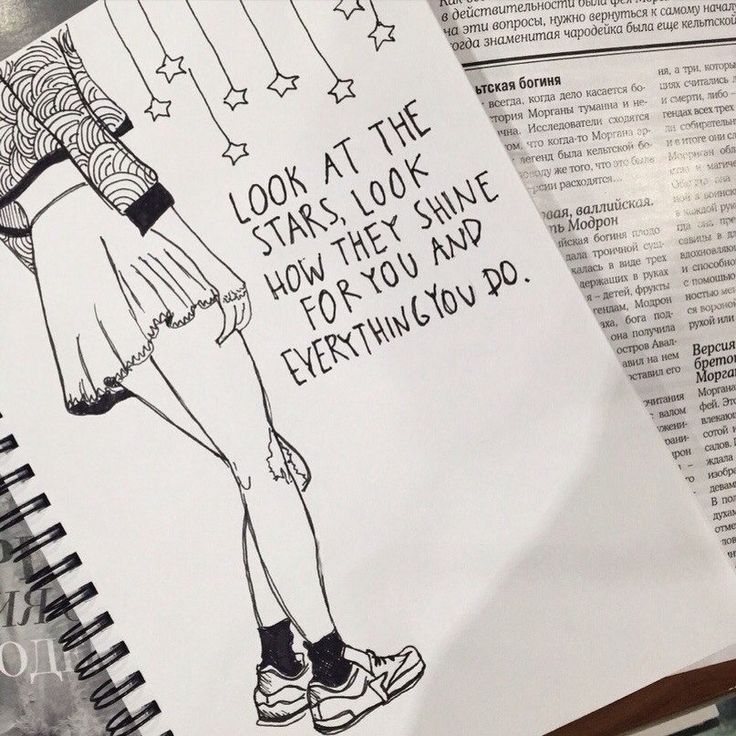 LOOK AT THE
STARS, LOOK
HOW THEY SHINE
FOR YOU AND
EVERYTHING YOU DO.
в действительности была фея Мор
на эти вопросы, нужно вернуться к самому началу
когда знаменитая чародейка была еще кельтской
льтская богиня
всегда, когда дело касается бо-
тория Морганы туманна и не-
чна. Исследователи сходятся
ом, что когда-то Моргана
легенд была кельтской бо-
же того, что это было
рсии расходятся...
вая, валлийская.
ть Модрон
йская богиня плодо
дала троичной сущ-
калась в виде трех
держащих в руках
я – детей, фрукты
гендам, Модрон
аха, бога под-
она получила
остров Авал-
авил на нем
оставил его
очитания
с валом
ужени-
рани-
дрон
ня, а три, которы
циях считались
и смерти, либо –
гендах всех трех
ли собирательн
и в итоге они сл
Морриган обл
и магиче
в воинск
в каждой рук
гда она пре
савицы в дл
вдохновляющ
и способно
с помощью
ностью мет
ся вороной
рукой или
Версия
бретон
Морган
Моргана
фей. Это
влекающ
сотой и
салов. П
ждала
изобра
девам
В пол
духам
отме
лов
ин